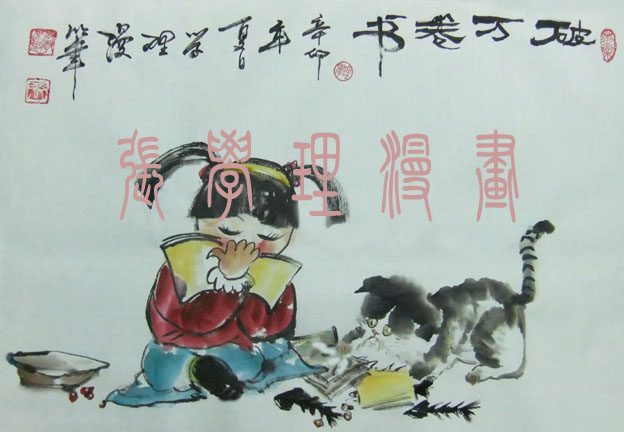 破万卷书
辛卯年夏日学理漫笔
張學理漫畫